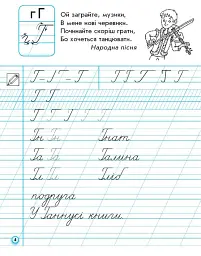 гГ
Ой заграйте, музики,
В мене нові черевики.
Починайте скоріш грати,
Бо хочеться танцювати.
Народна пісня
Г Г
Гн Гн Гнат
Га Га Галина
Гліб
подруга
У Ганнусі книги.
4